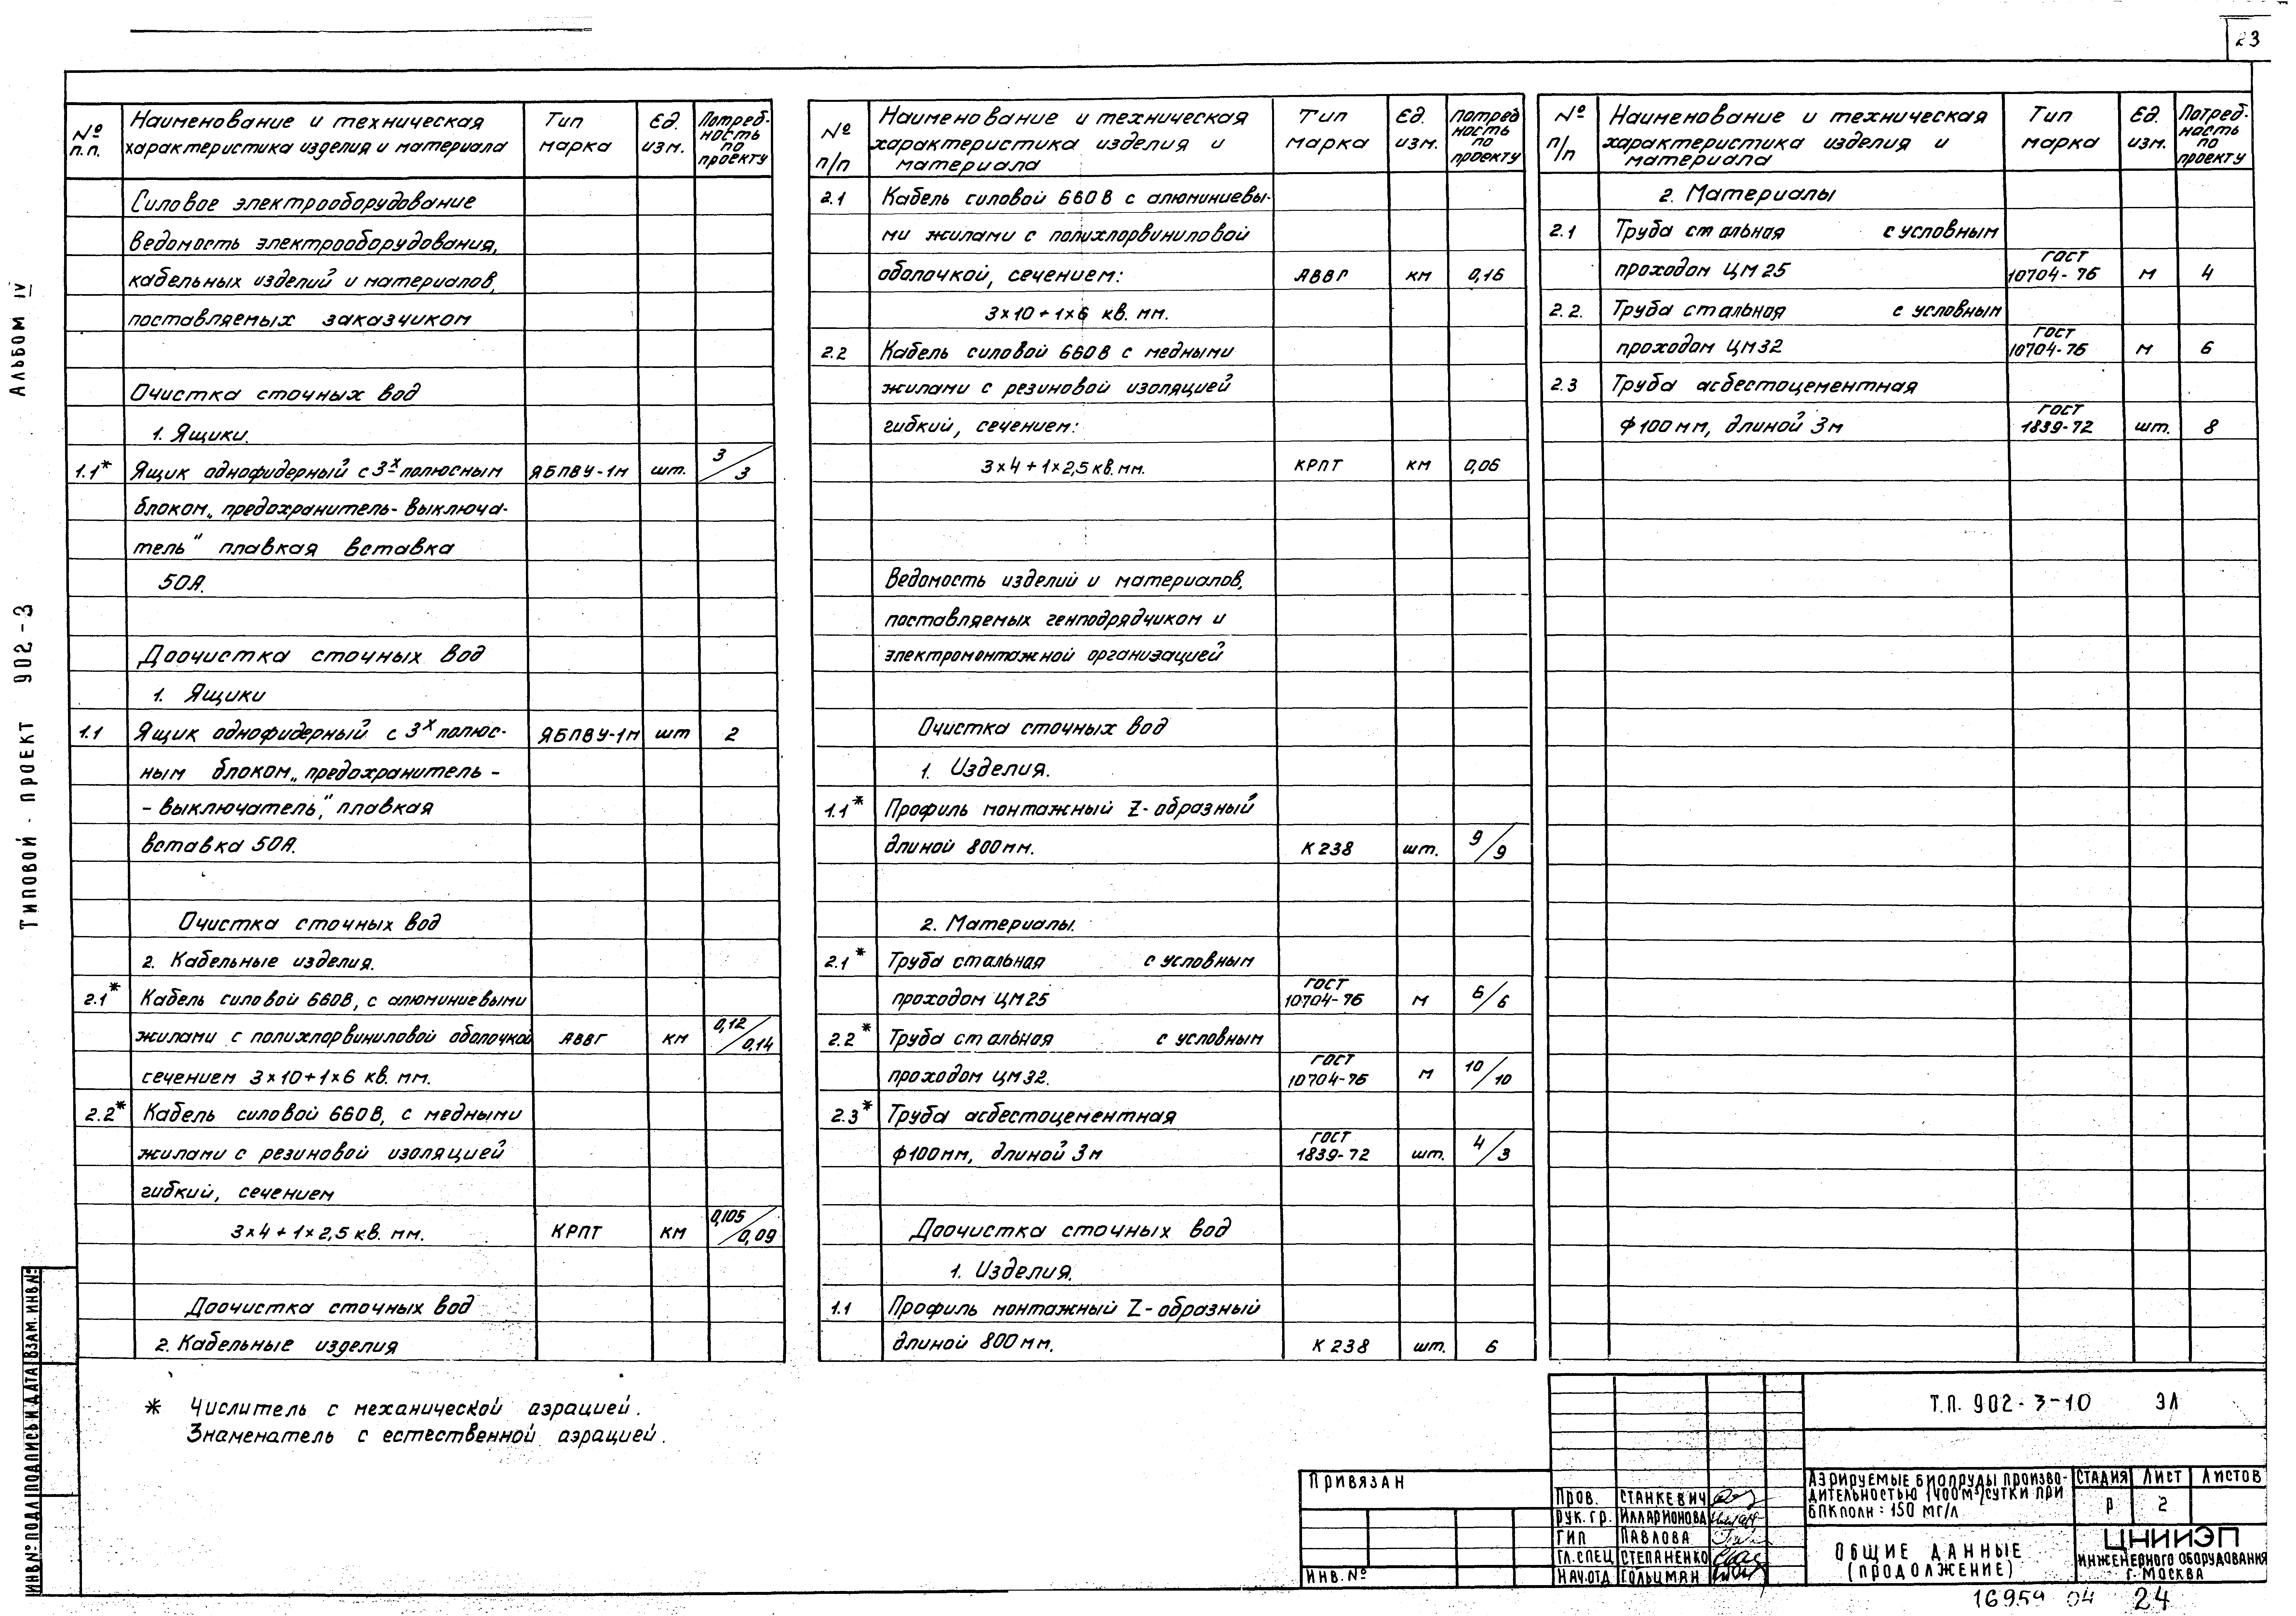 23
АЛЬБОМ IV
ТИПОВОЙ - ПРОЕКТ 902-3
№ п.п. | Наименование и техническая характеристика изделия и материала | Тип марка | Ед. изм. | Потреб-ность по проекту
Силовое электрооборудование
Ведомость электрооборудования,
кабельных изделий и материалов,
поставляемых заказчиком
Очистка сточных вод
1. Ящики.
1.1* Ящик однофидерный с 3х полюсным ЯБПВУ-1м шт. 3/3
блоком „предохранитель-выключа-
тель" плавкая вставка
50А.
Доочистка сточных вод
1. Ящики
1.1 Ящик однофидерный с 3х полюс- ЯБПВУ-1м шт 2
ным блоком „предохранитель -
- выключатель", плавкая
вставка 50А.
Очистка сточных вод
2. Кабельные изделия.
2.1* Кабель силовой 660В, с алюминиевыми
жилами с полихлорвиниловой оболочкой АВВГ км 0,12/0,14
сечением 3×10+1×6 кв. мм.
2.2* Кабель силовой 660В, с медными
жилами с резиновой изоляцией
гибкий, сечением
3×4+1×2,5 кв. мм. КРПТ км 0,105/0,09
Доочистка сточных вод
2. Кабельные изделия
№ п/п | Наименование и техническая характеристика изделия и материала | Тип марка | Ед. изм. | Потреб ность по проекту
2.1 Кабель силовой 660В с алюминиевы-
ми жилами с полихлорвиниловой
оболочкой, сечением: АВВГ км 0,16
3×10+1×6 кв. мм.
2.2 Кабель силовой 660В с медными
жилами с резиновой изоляцией
гибкий, сечением:
3×4+1×2,5 кв. мм. КРПТ км 0,06
Ведомость изделий и материалов,
поставляемых генподрядчиком и
электромонтажной организацией
Очистка сточных вод
1. Изделия.
1.1* Профиль монтажный Z-образный
длиной 800мм. К 238 шт. 9/9
2. Материалы.
2.1* Труба стальная с условным
проходом ЦМ25 ГОСТ 10704-76 м 6/6
2.2* Труба стальная с условным
проходом ЦМ32. ГОСТ 10704-76 м 10/10
2.3* Труба асбестоцементная
ф100мм, длиной 3м ГОСТ 1839-72 шт. 4/3
Доочистка сточных вод
1. Изделия.
1.1 Профиль монтажный Z-образный
длиной 800мм. К 238 шт. 6
№ п/п | Наименование и техническая характеристика изделия и материала | Тип марка | Ед. изм. | Потреб-ность по проекту
2. Материалы
2.1 Труба стальная с условным
проходом ЦМ25 ГОСТ 10704-76 м 4
2.2. Труба стальная с условным
проходом ЦМ32 ГОСТ 10704-76 м 6
2.3 Труба асбестоцементная
ф100мм, длиной 3м ГОСТ 1839-72 шт. 8
* Числитель с механической аэрацией.
Знаменатель с естественной аэрацией.
ИНВ№ПОДЛ ПОДПИСЬ И ДАТА ВЗАМ. ИНВ№
ПРИВЯЗАН
ИНВ. №
ПРОВ. СТАНКЕВИЧ
РУК. ГР. ИЛЛАРИОНОВА
ГИП ПАВЛОВА
ГЛ. СПЕЦ СТЕПАНЕНКО
НАЧ.ОТД ГОЛЬЦМАН
Т.П. 902-3-10 ЭЛ
АЭРИРУЕМЫЕ БИОПРУДЫ ПРОИЗВО-
ДИТЕЛЬНОСТЬЮ 1400М³/СУТКИ ПРИ
БПКПОЛН = 150 МГ/Л
СТАДИЯ ЛИСТ ЛИСТОВ
Р 2
ОБЩИЕ ДАННЫЕ
(ПРОДОЛЖЕНИЕ)
ЦНИИЭП
ИНЖЕНЕРНОГО ОБОРУДОВАНИЯ
Г. МОСКВА
16959 04 24